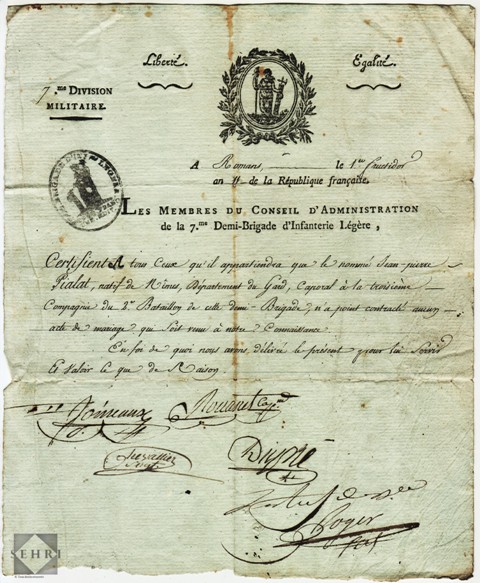 Liberté. Egalité.
7.me DIVISION
MILITAIRE.
A Romans, le 1er fructidor
an de la République française.
LES MEMBRES DU CONSEIL D'ADMINISTRATION
de la 7.me Demi-Brigade d'Infanterie Légère,
Certifient A tous Ceux qu'il appartiendra que le nommé Jean-pierre
Pialat, natif de Nimes, Département du Gard, Caporal à la troisieme
Compagnie du 2e Bataillon de cette demi-Brigade, n'a point contracté aucun
acte de mariage qui soit venu à notre Connaissance.
En foi de quoi nous avons, délivré le présent pour lui Servir
Et valoir ce que de Raison.
Roger
SEHRI